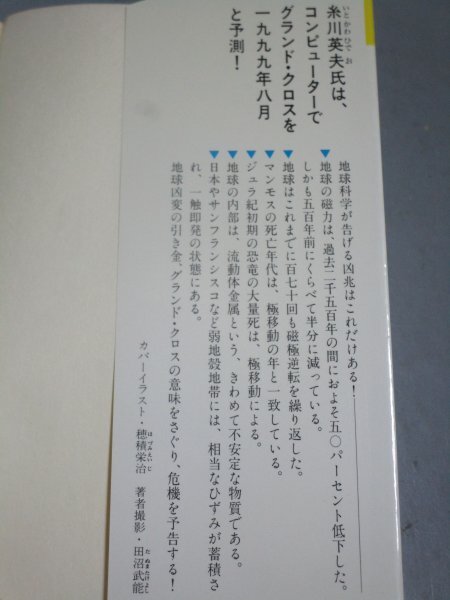 糸川英夫氏は、
いとかわひでお
コンピューターで
グランド・クロスを
一九九九年八月
と予測！
地球科学が告げる凶兆はこれだけある！
▼地球の磁力は、過去二千五百年の間におよそ五〇パーセント低下した。
しかも五百年前にくらべて半分に減っている。
▼地球はこれまでに百七十回も磁極逆転を繰り返した。
▼マンモスの死亡年代は、極移動の年と一致している。
▼ジュラ紀初期の恐竜の大量死は、極移動による。
▼地球の内部は、流動体金属という、きわめて不安定な物質である。
▼日本やサンフランシスコなど弱地殻地帯には、相当なひずみが蓄積さ
れ、一触即発の状態にある。
地球凶変の引き金、グランド・クロスの意味をさぐり、危機を予告する！
カバーイラスト・穂積栄治　著者撮影・田沼武能
ほづみえいじ　たぬまたけよし